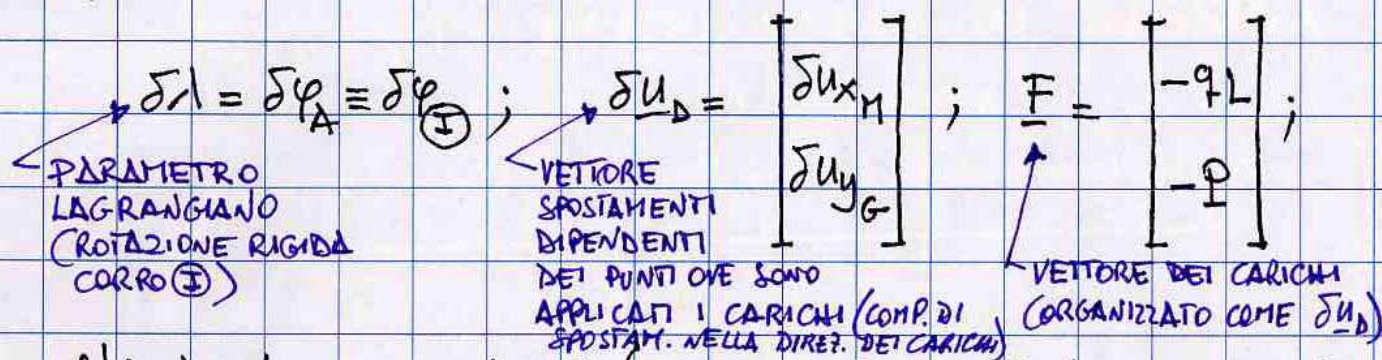 δλ = δφ_A ≡ δφ_Ⓘ ; δu_D = [δu_{x_M} ; δu_{y_G}] ; F = [-qL ; -P] ;
PARAMETRO
LAGRANGIANO
(ROTAZIONE RIGIDA
CORPO Ⓘ)
VETTORE
SPOSTAMENTI
DIPENDENTI
DEI PUNTI OVE SONO
APPLICATI I CARICHI (COMP. DI
SPOSTAM. NELLA DIREZ. DEI CARICHI)
VETTORE DEI CARICHI
(ORGANIZZATO COME δu_D)